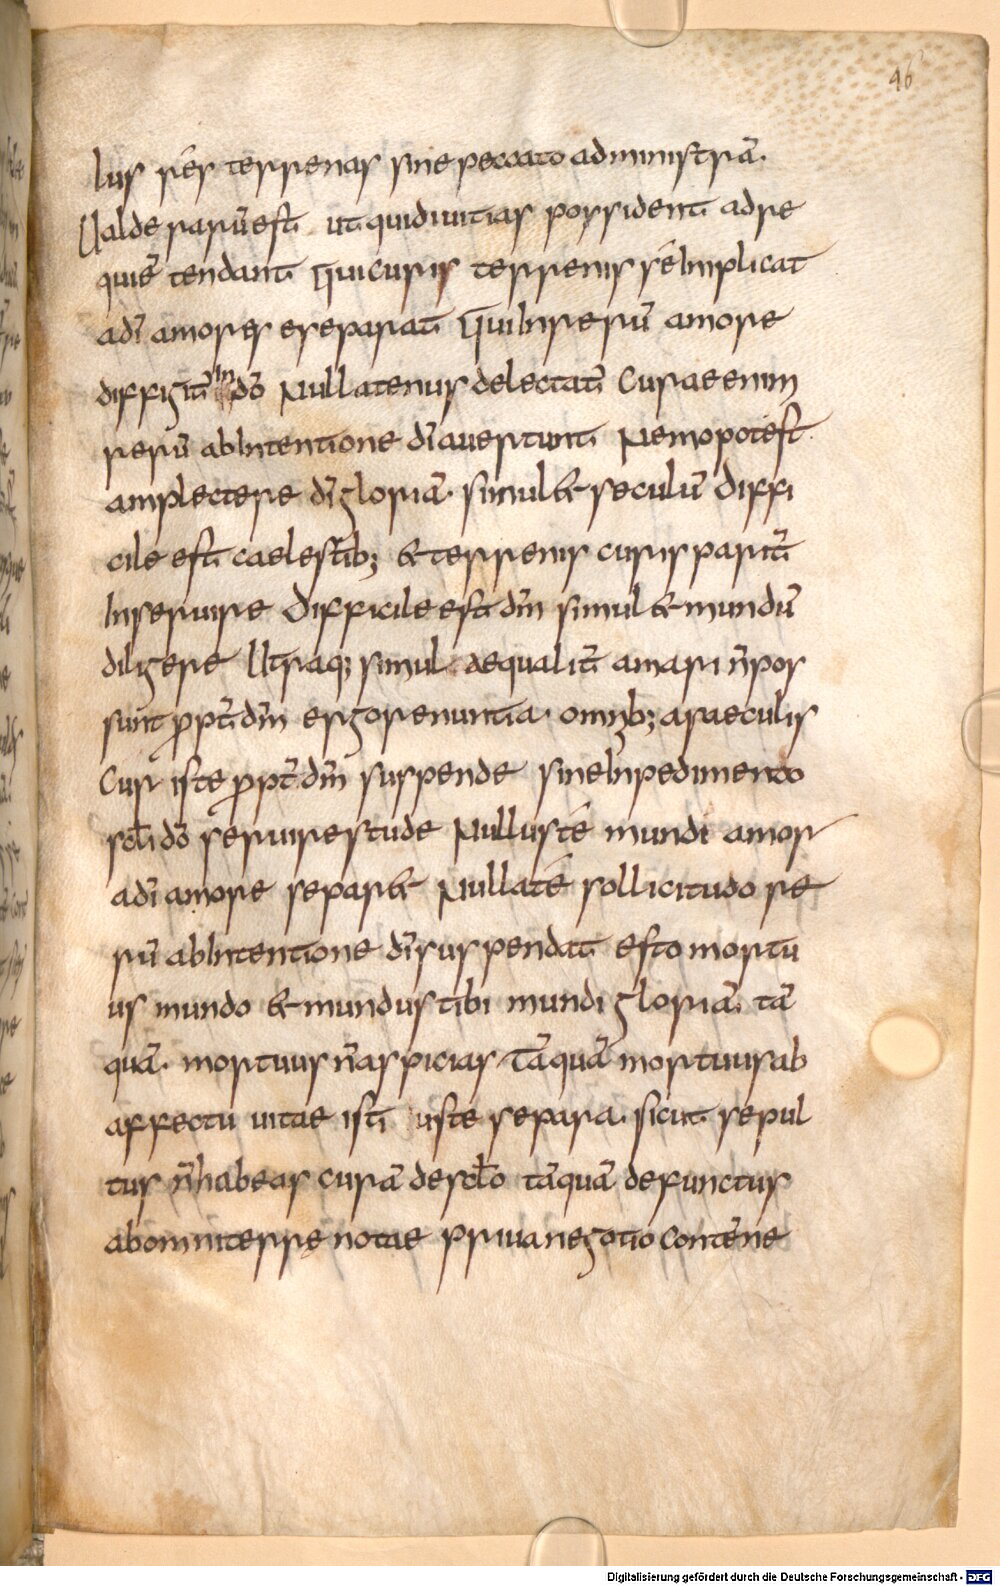 46
lus rēs terrenas sine peccato administrā.
Ualde rarū est ut qui diuitias possident ad re
quiē tendant Qui curis terrenis sē Implicat
a dī amores e separat Qui In rerū amore
diffigit̄ in dō Nullatenus delectat̄ Curae enim
rerū ab Intentione dī auertunt Nemo potest
amplectere dī gloriā. simul & seculū Diffi
cile est caelestib; & terrenis curis parit̄
Inseruire Difficile est dn̄m simul & mundū
diligere Utraq; simul aequalit̄ amari n̄ pos
sunt ppt̄ dn̄m ergo renuntia omnib; a saeculis
Curis te ppt̄ dn̄m suspende sine Inpedimento
scl̄i dō seruire stude Nullus tē mundi amor
a dī amore separ& Nulla tē sollicitudo re
rū ab Intentione dī suspendat esto mortu
us mundo & mundus tibi mundi gloriā tā
quā. mortuus n̄ aspicias Tāquā mortuus ab
affectu uitae ist̄ uste separa sicut sepul
tus n̄ habeas curā de scl̄o tāquā defunctus
ab omni terrenotae priua negotio Contēne
Digitalisierung gefördert durch die Deutsche Forschungsgemeinschaft - DFG